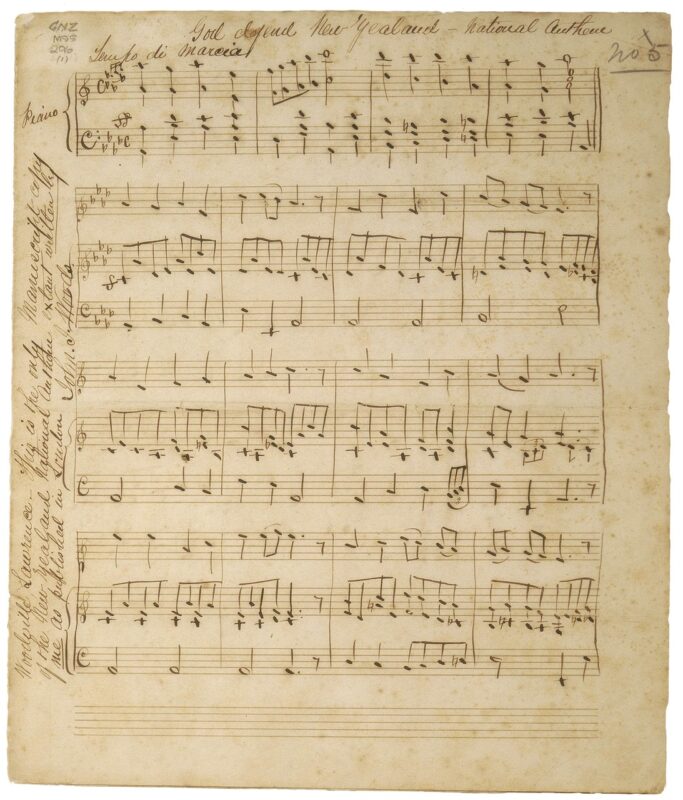 GNZ
MSS
296
(1)
God defend New Zealand - National Anthem
no 5
Tempo di Marcia
Piano
ff
p
Woodville Lawrence - This is the only Manuscript copy
of the New Zealand National Anthem extant written by
me as published in London John. J. Woods